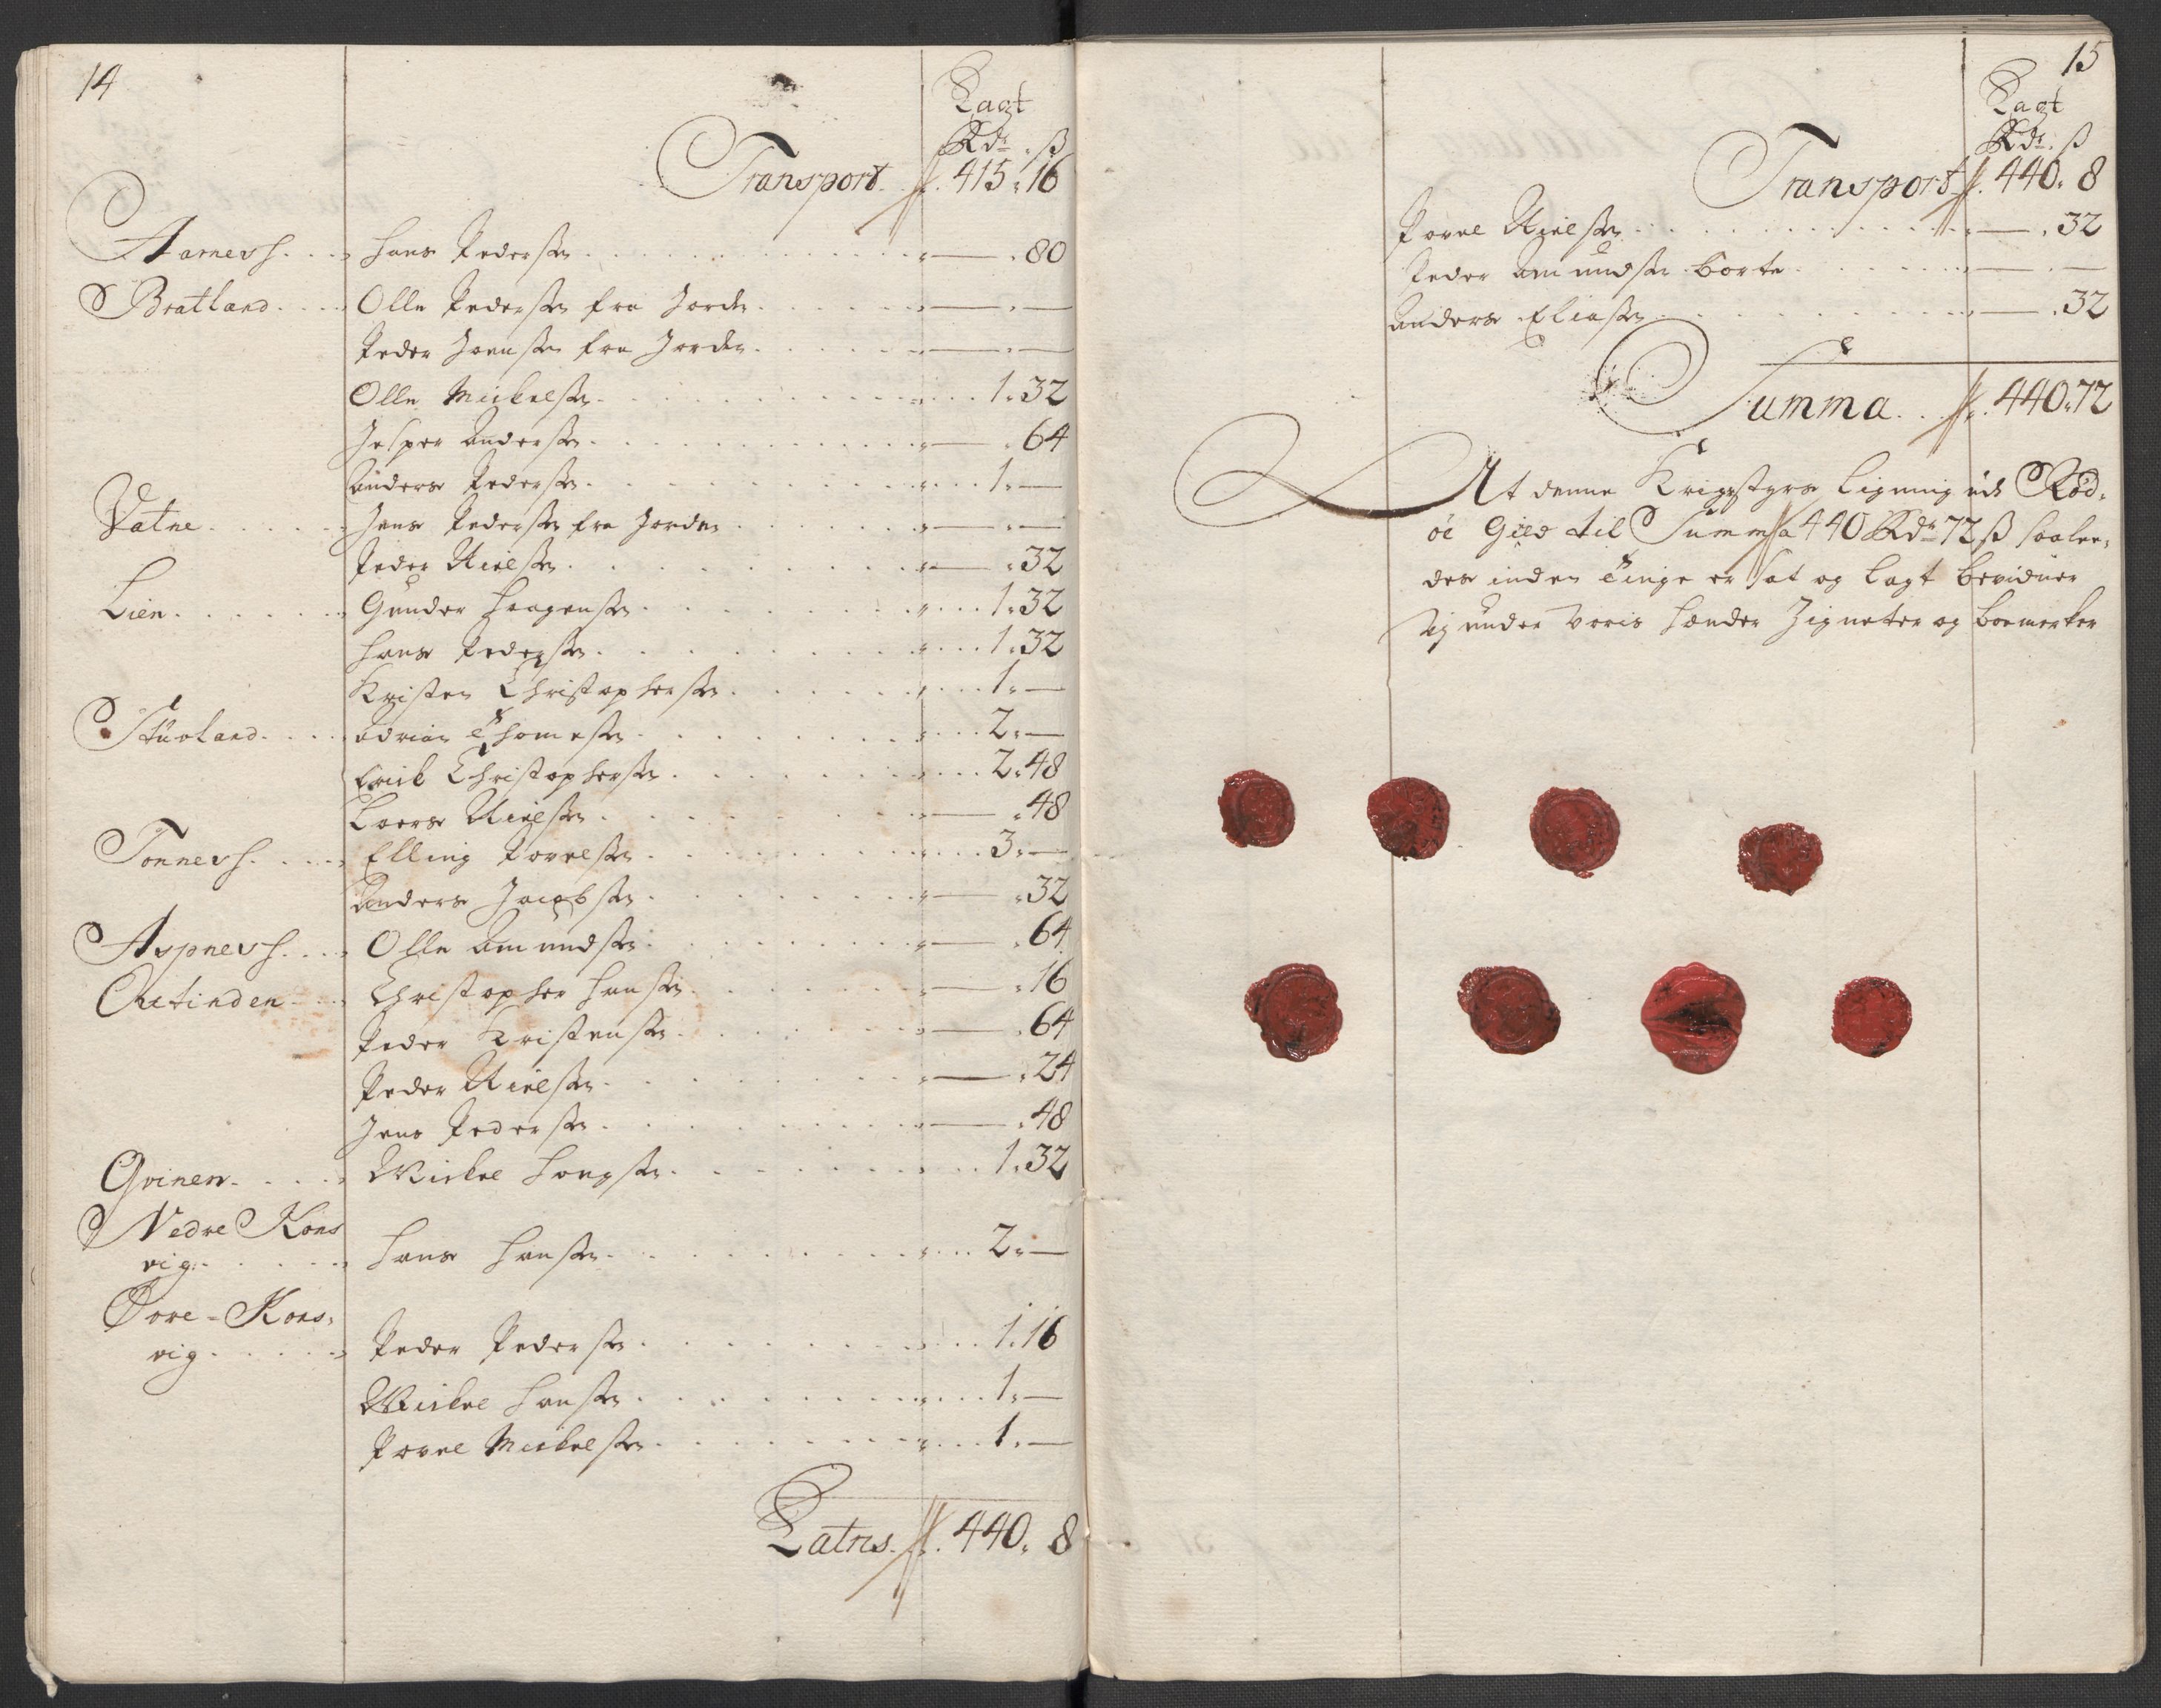 14
Lagt
Rdr. ß
Transport. 415. 16
Aarnesh. Hans Pedersen. 80
Bratland. Olle Pedersen fra Jorden. —
Peder Joensen fra Jorden. —
Olle Mickelsen. 1. 32
Jesper Andersen. 64
Anders Pedersen. 1. —
Vatne. Jens Pedersen fra Jorden —
Peder Nielsen. 32
Lien. Gunder Haagensen. 1. 32
Hans Pedersen. 1. 32
Kristen Christophersen. 1. —
Stuvland. Adrian Thomesen. 2. —
Erick Christophersen. 2. 48
Laers Nielsen. 48
Tonnesh. Elling Povelsen. 3. —
Anders Jacobsen. 32
Aspnesh. Olle Amundsen. 64
Christopher Hansen. 16
Peder Kristensen. 64
Peder Nielsen. 24
Jens Pedersen. 48
Qvinen. Mickel 1. 32
Nedre Kons
vig. Hans Hansen. 2. —
Øvre-Kons-
vig. Peder Pedersen. 1. 16
Mickel Hansen. 1. —
Povel Mickelsen. 1. —
Latus. 440. 8
15
Lagt
Rdr. ß
Transport 440. 8
Povel Nielsen. 32
Peder Amundsen borte. —
Anders Eliasen. 32
Summa. 440. 72
At denne Krigsstyrs Ligning udi Rød-
øe Gield til Summa 440 Rdr 72 ß saale-
des inden Tinge er sat og lagt bevidner
vj under voris Hænder Zigneter og boemerker